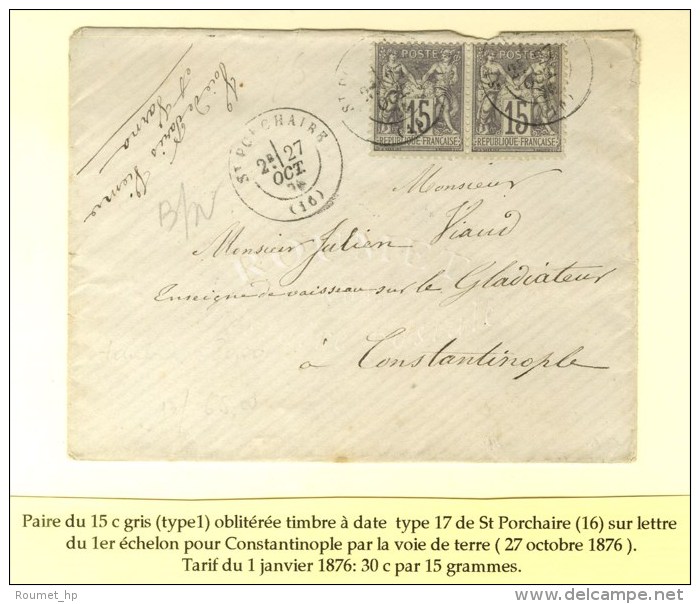 Voie de Paris Vienne
et Varna
B/N
ST PORCHAIRE
2E 27
OCT.
76
(16)
POSTE
15
REPUBLIQUE FRANCAISE
POSTE
15
REPUBLIQUE FRANCAISE
Monsieur
Monsieur Julien Viaud
Enseigne de vaisseau sur le Gladiateur
à Constantinople
ROUMET
Paire du 15 c gris (type1) oblitérée timbre à date type 17 de St Porchaire (16) sur lettre
du 1er échelon pour Constantinople par la voie de terre ( 27 octobre 1876 ).
Tarif du 1 janvier 1876: 30 c par 15 grammes.
Roumet_hp
delcampe.net